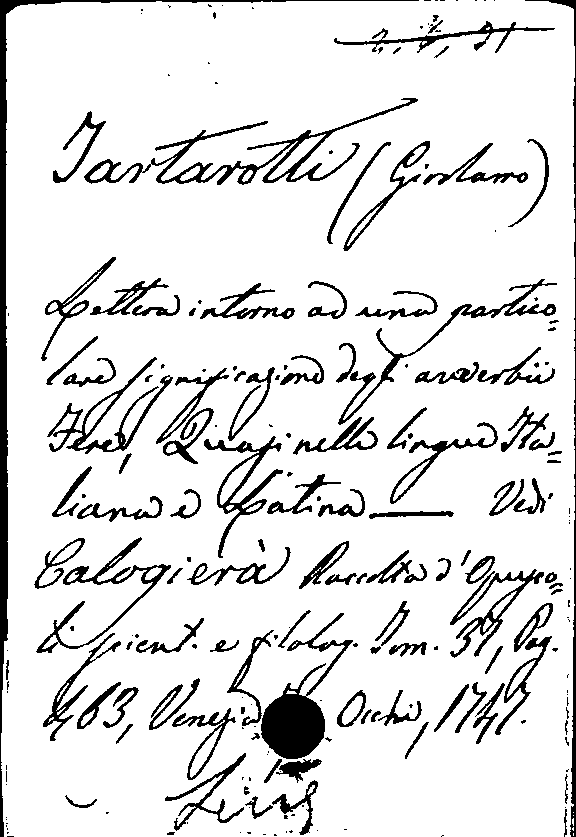 Tartarotti (Girolamo)
Lettera intorno ad una partico=
lare significazione degli avverbii
Fere, Quasi nelle lingue Ita=
liana e Latina — Vedi
Calogierà Raccolta d'Opusco=
li scient. e filolog. Tom. 37, Pag.
463, Venezia Occhi, 1747.